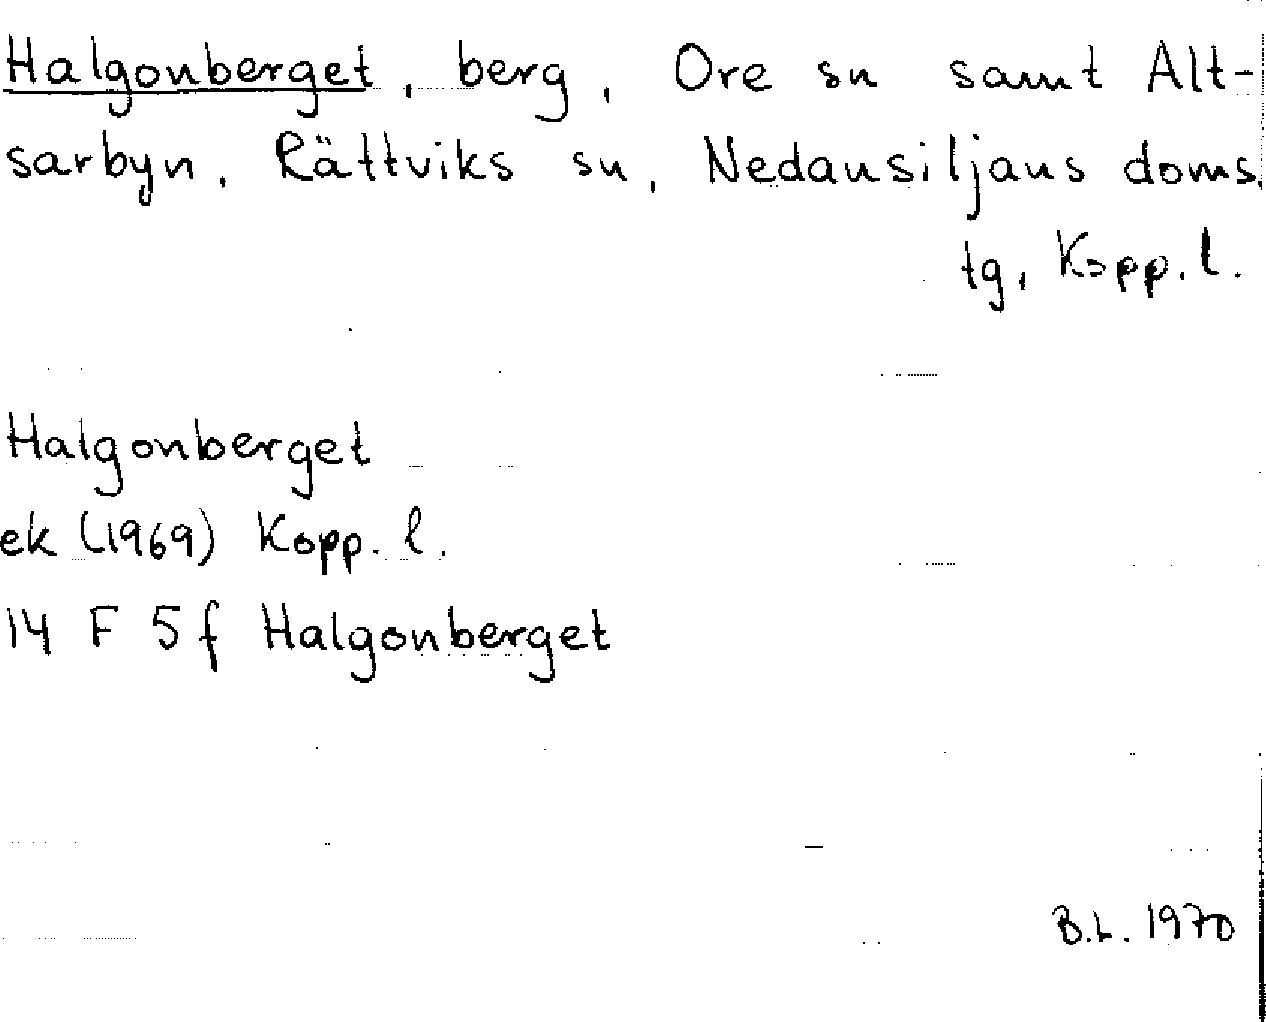 Halgonberget, berg, Ore sn samt Alt-
sarbyn, Rättviks sn, Nedansiljans doms.
tg, Kopp. l.
Halgonberget
ek (1969) Kopp. l.
14 F 5 f Halgonberget
B.L. 1970